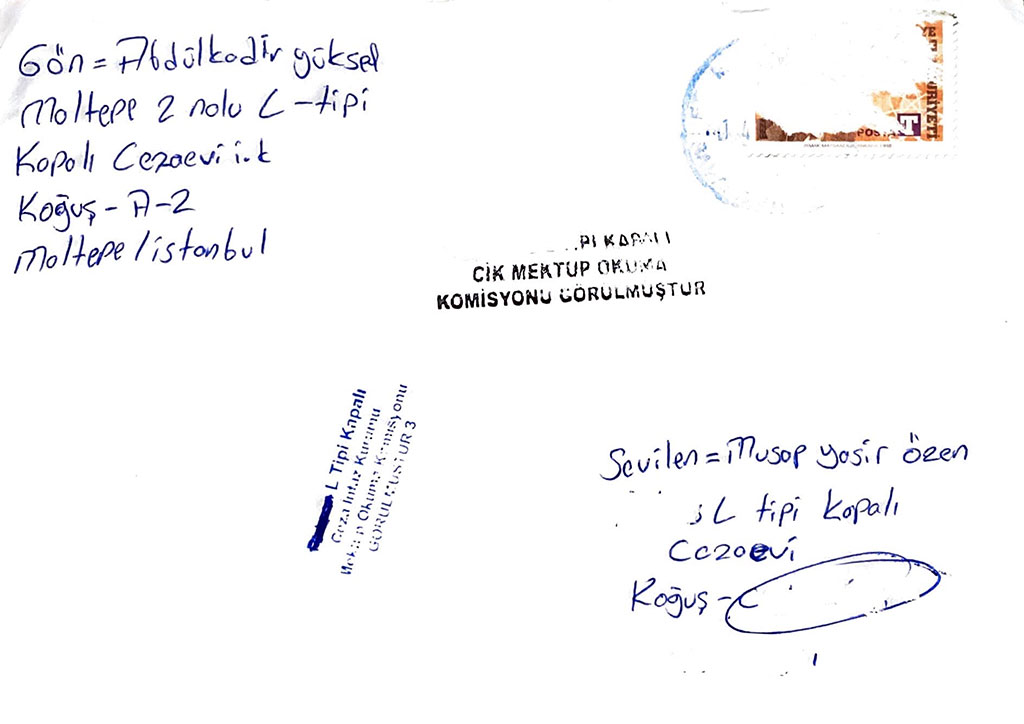 Gön = Abdülkadir yüksel
Maltepe 2 nolu L-tipi
Kapalı Cezaevi i.k
Koğuş - A-2
Maltepe / istanbul
POSTA
PI KAPALI
CİK MEKTUP OKUMA
KOMİSYONU GÖRÜLMÜŞTÜR
L Tipi Kapalı
Ceza İnfaz Kurumu
Mektup Okuma Komisyonu
GÖRÜLMÜŞTÜR 3
Sevilen = Musap yasir özen
L tipi Kapalı
Cezaevi
Koğuş - C